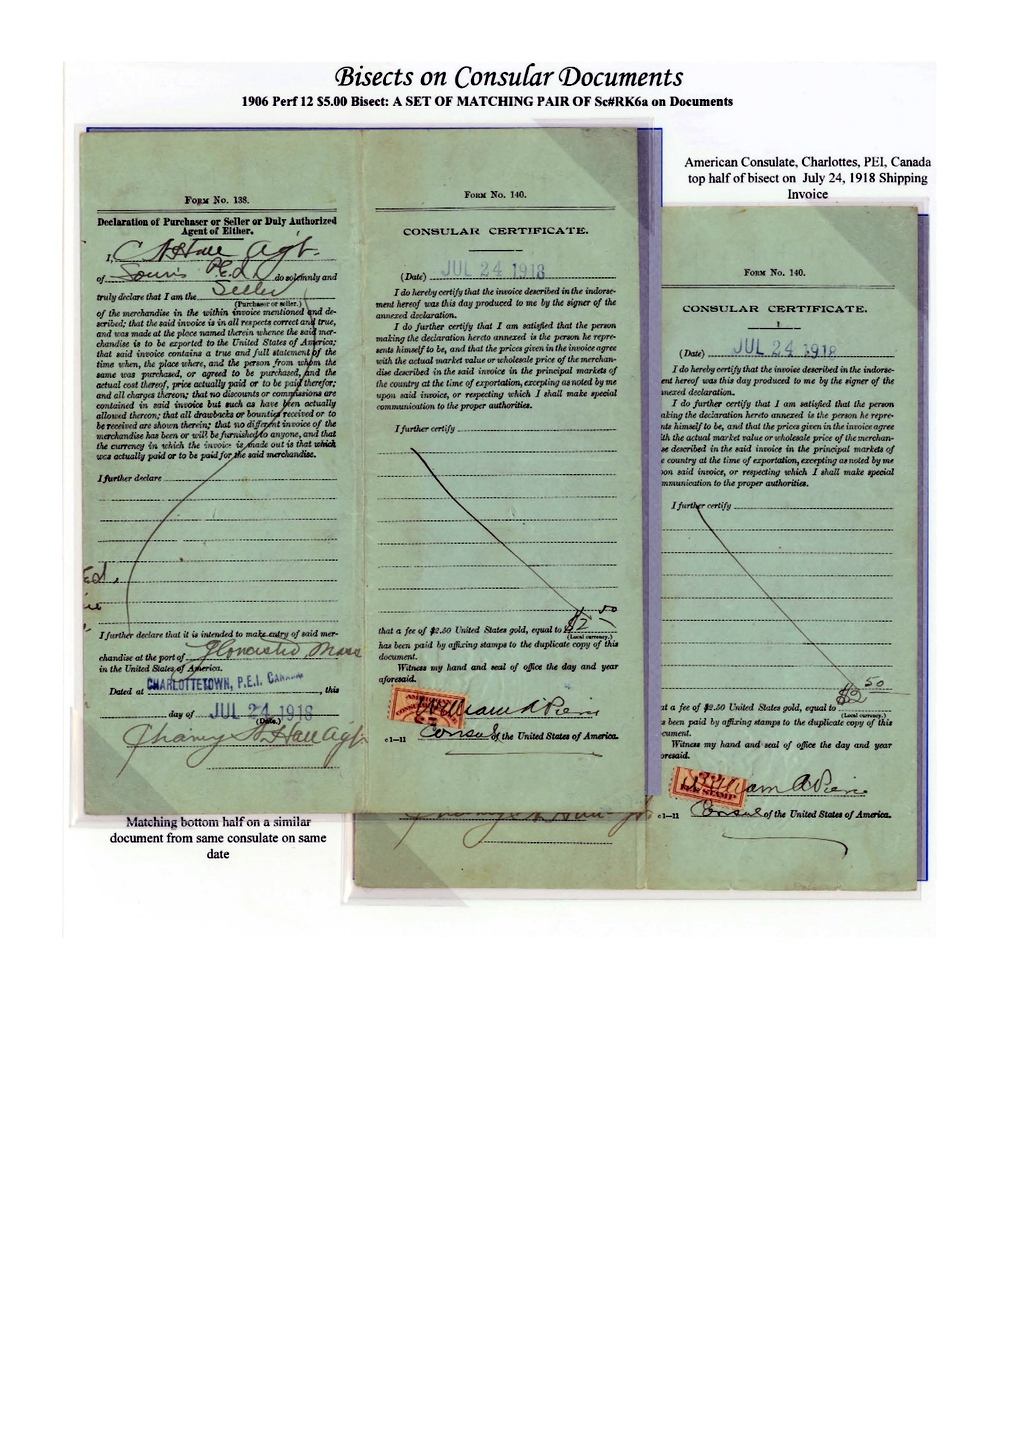 Bisects on Consular Documents
1906 Perf 12 $5.00 Bisect: A SET OF MATCHING PAIR OF Sc#RK6a on Documents
American Consulate, Charlottes, PEI, Canada
top half of bisect on July 24, 1918 Shipping
Invoice
FORM NO. 138.
Declaration of Purchaser or Seller or Duly Authorized
Agent of Either.
I, C H Hall Agt.
of Souris P.E.I. do solemnly and
truly declare that I am the Seller
(Purchaser or seller.)
of the merchandise in the within invoice mentioned and de-
scribed; that the said invoice is in all respects correct and true,
and was made at the place named therein whence the said mer-
chandise is to be exported to the United States of America;
that said invoice contains a true and full statement of the
time when, the place where, and the person from whom the
same was purchased, or agreed to be purchased, and the
actual cost thereof, price actually paid or to be paid therefor;
and all charges thereon; that no discounts or commissions are
contained in said invoice but such as have been actually
allowed thereon; that all drawbacks or bounties received or to
be received are shown therein; that no different invoice of the
merchandise has been or will be furnished to anyone, and that
the currency in which the invoice is made out is that which
was actually paid or to be paid for the said merchandise.
I further declare
I further declare that it is intended to make entry of said mer-
chandise at the port of Gloucester Mass
in the United States of America.
Dated at CHARLOTTETOWN, P.E.I. CANADA, this
day of JUL 24 1918
(Date.)
Hall Agt
FORM NO. 140.
CONSULAR CERTIFICATE.
(Date) JUL 24 1918
I do hereby certify that the invoice described in the indorse-
ment hereof was this day produced to me by the signer of the
annexed declaration.
I do further certify that I am satisfied that the person
making the declaration hereto annexed is the person he repre-
sents himself to be, and that the prices given in the invoice agree
with the actual market value or wholesale price of the merchan-
dise described in the said invoice in the principal markets of
the country at the time of exportation, excepting as noted by me
upon said invoice, or respecting which I shall make special
communication to the proper authorities.
I further certify
that a fee of $2.50 United States gold, equal to $2 50
(Local currency.)
has been paid by affixing stamps to the duplicate copy of this
document.
Witness my hand and seal of office the day and year
aforesaid.
William A Pierce
c1—11 Consul of the United States of America.
FORM NO. 140.
CONSULAR CERTIFICATE.
1
(Date) JUL 24 1918
I do hereby certify that the invoice described in the indorse-
ent hereof was this day produced to me by the signer of the
nnexed declaration.
I do further certify that I am satisfied that the person
aking the declaration hereto annexed is the person he repre-
nts himself to be, and that the prices given in the invoice agree
ith the actual market value or wholesale price of the merchan-
se described in the said invoice in the principal markets of
e country at the time of exportation, excepting as noted by me
pon said invoice, or respecting which I shall make special
mmunication to the proper authorities.
I further certify
at a fee of $2.50 United States gold, equal to $2 50
(Local currency.)
s been paid by affixing stamps to the duplicate copy of this
cument.
Witness my hand and seal of office the day and year
oresaid.
FEE STAMP
William A Pierce
c1—11 Consul of the United States of America.
Matching bottom half on a similar
document from same consulate on same
date